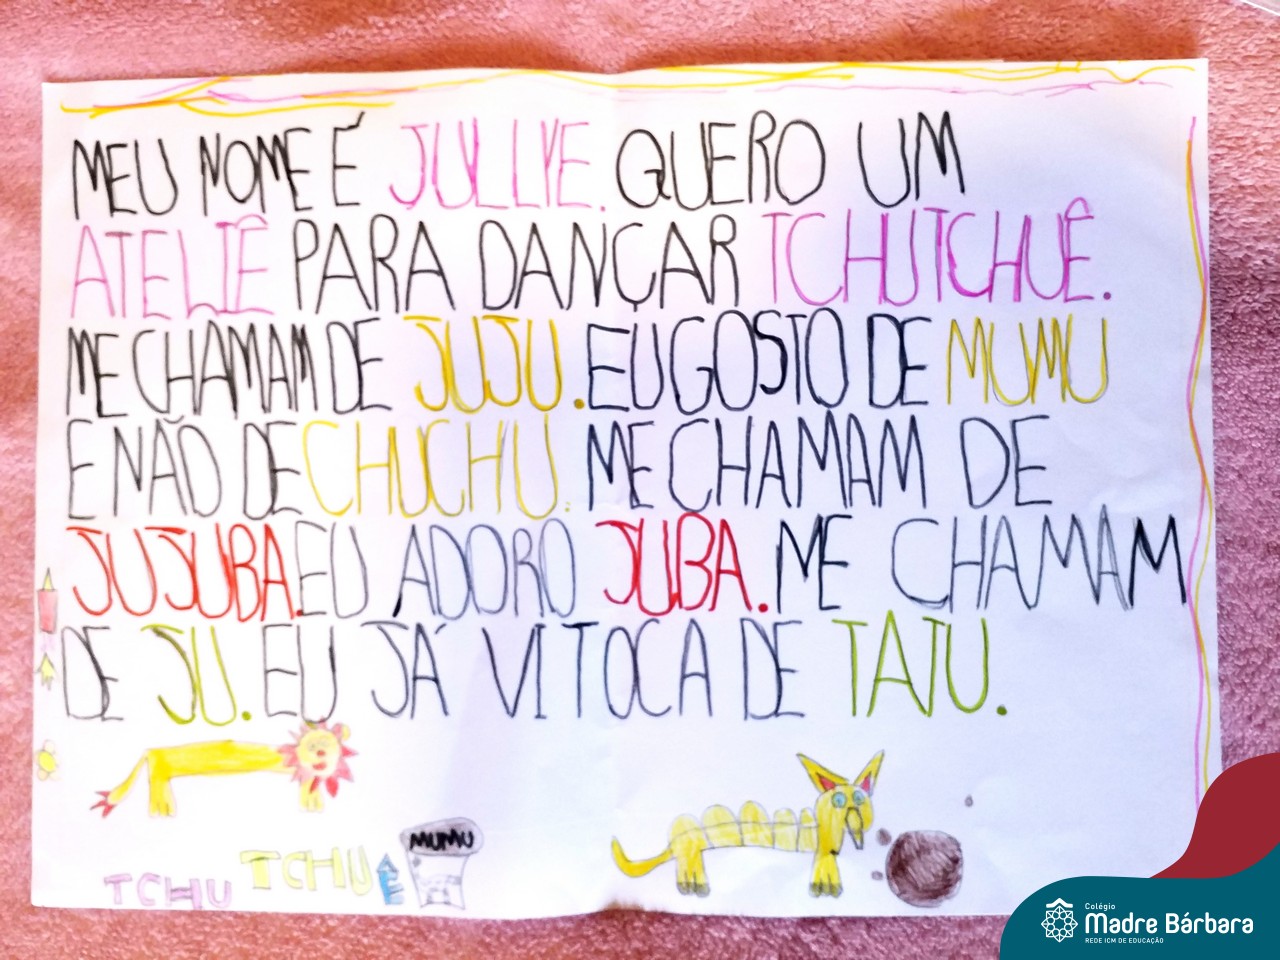 MEU NOME É JULLYE. QUERO UM
ATELIÊ PARA DANÇAR TCHUTCHUÊ.
ME CHAMAM DE JUJU. EU GOSTO DE MUMU
E NÃO DE CHUCHU. ME CHAMAM DE
JUJUBA. EU ADORO JUBA. ME CHAMAM
DE JU. EU JÁ VI TOCA DE TATU.
MUMU
TCHU TCHU Ê
Colégio
Madre Bárbara
REDE ICM DE EDUCAÇÃO